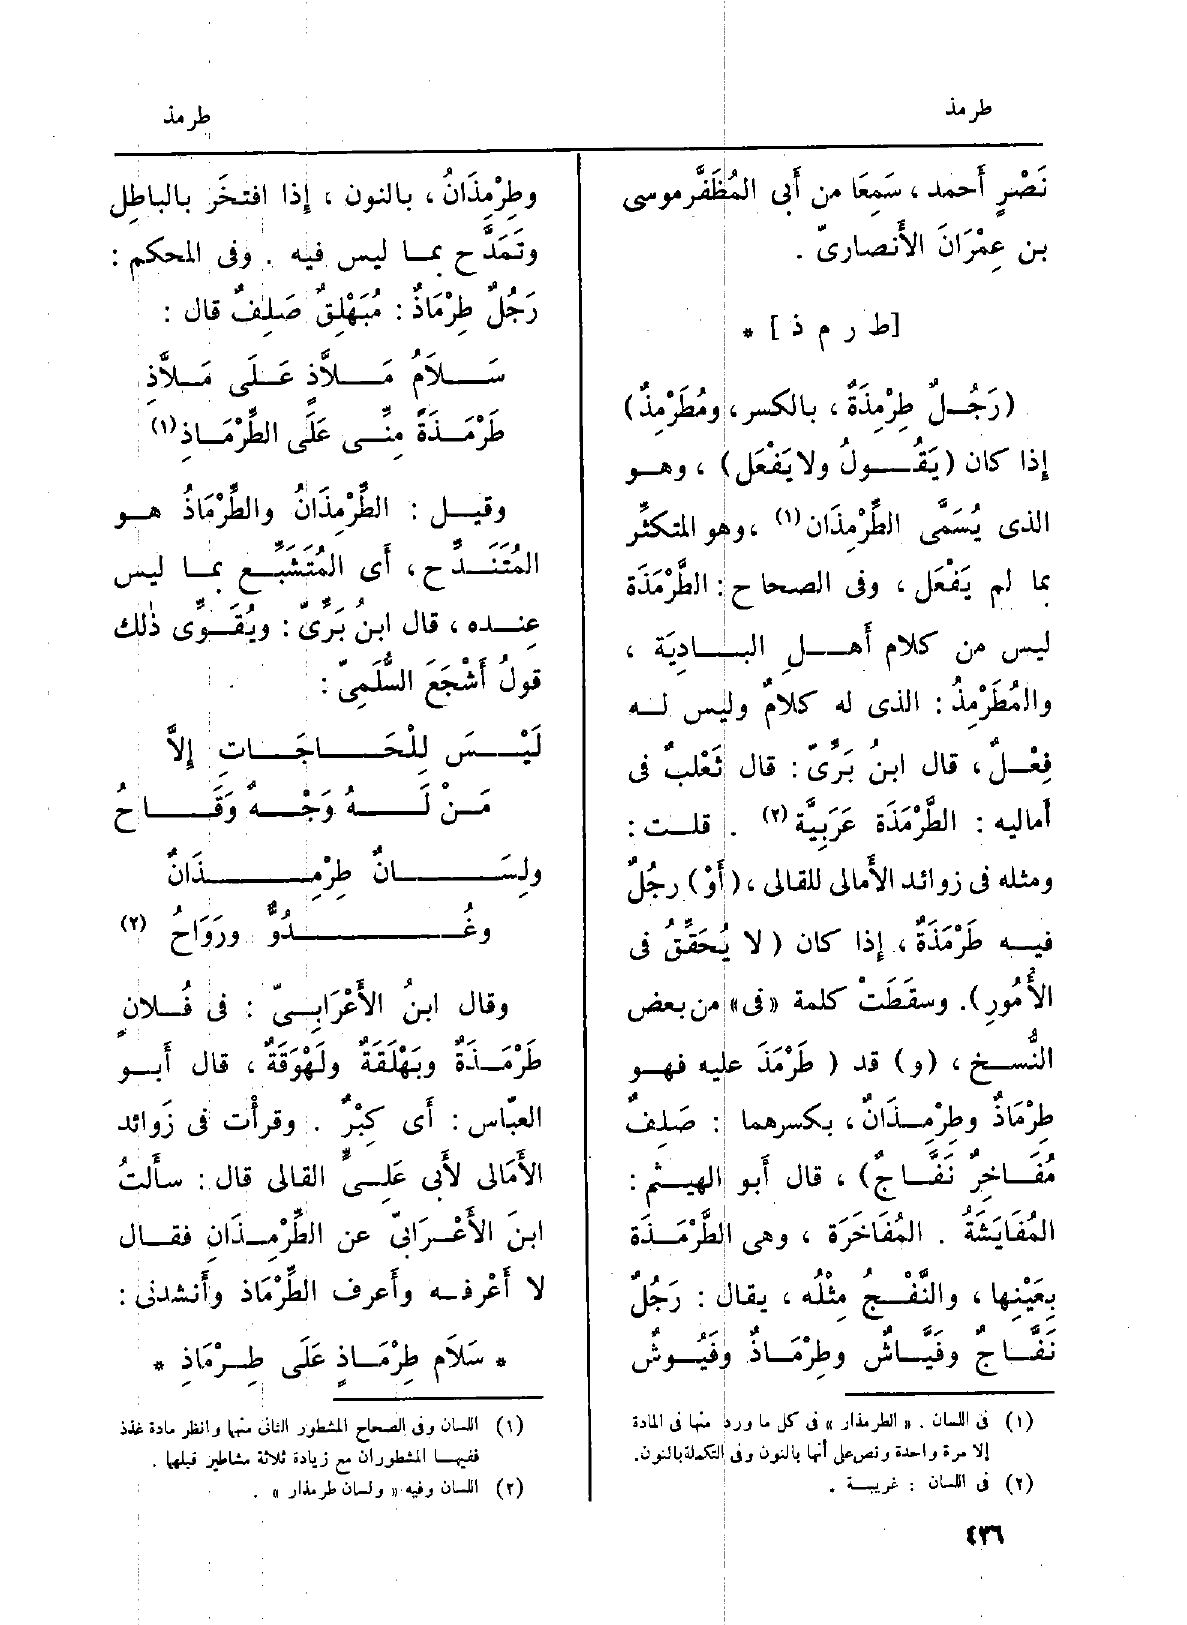 طرمذ
طرمذ
نَصْرٍ أَحمد ، سَمِعَا من أَبى المُظَفَّر موسى
بن عِمْرَانَ الأَنصارىّ .
[ ط ر م ذ ] *
(رَجُـلٌ طِرْمِذَةٌ ، بالكسر ، ومُطَرْمِذٌ)
إِذا كان (يَقُــولُ ولا يَفْعَل) ، وهـو
الذى يُسَمَّى الطِّرْمِذَان (١) ، وهو المتكثِّر
بما لم يَفْعَل ، وفى الصحاح : الطَّرْمَذَة
ليس من كلام أَهــلِ البــادِيَة ،
والمُطَرْمِذُ : الذى له كلامٌ وليس لــه
فِعْـلٌ ، قال ابنُ بَرِّىّ : قال ثَعْلَبٌ فى
أَماليه : الطَّرْمَذَة عَرَبِيَّة (٢) . قلـت :
ومثله فى زوائد الأَمالى للقالى ، (أَوْ) رجُلٌ
فيـه طَرْمَذَةٌ ، إِذا كان ( لا يُحَقِّقُ فى
الأُمُورِ). وسقَطَتْ كلمة «فى» من بعض
النُّسـخ ، (و) قد ( طَرْمَذَ عليه فهـو
طِرْمَاذٌ وطِرْمِـذَانٌ ، بكسرهما : صَلِفٌ
مُفَـاخِرٌ نَفَّـاجٌ) ، قال أَبو الهيثم :
المُفَايَشَةُ . المُفَاخَرَة ، وهى الطَّرْمَـذَة
بِعَيْنِها ، والنَّفْـجُ مِثْلُه ، يقال : رَجُلٌ
نَفَّـاجٌ وفَيَّـاشٌ وطِرْمَـاذٌ وفَيُـوشٌ
(١) فى اللسان . « الطرمذار » فى كل ما ورد منها فى المادة
إلا مرة واحدة ونص على أنها بالنون وفى التكملة بالنون.
(٢) فى اللسان : غريبـة .
وطِرْمِذَانٌ ، بالنون ، إِذا افتخَر بالباطِلِ
وتَمَدَّح بمـا ليس فيه . وفى المحكم :
رَجُلٌ طِرْمَاذٌ : مُبَهْلِقٌ صَلِفٌ قال :
سَــلاَمُ مَــلاَّذٍ عَـلَى مَـلاَّذِ
طَرْمَـذَةً مِنِّـى عَلَى الطِّرْمَـاذِ (١)
وقيـل : الطِّرْمِذَانُ والطِّرْمَاذُ هـو
المُتَنَـدِّح ، أَى المُتَشَبِّـع بمـا ليس
عِنـده ، قال ابنُ بَرِّىّ : ويُقَـوِّى ذٰلك
قولُ أَشْجَعَ السُّلَمِىّ :
لَيْــسَ لِلْحَــاجَــاتِ إِلاَّ
مَـنْ لَــهُ وَجْـهٌ وَقَــاحُ
ولِسَـــانٌ طِرْمِـــذَانٌ
وغُـــدُوٌّ ورَوَاحُ (٢)
وقال ابنُ الأَعْرَابِـىّ : فى فُـلانٍ
طَرْمَـذَةٌ وبَهْلَقَةٌ ولَهْوَقَةٌ ، قال أَبـو
العبّاس : أَى كِبْرٌ . وقرأْت فى زَوائد
الأَمَالى لأَبى عَلِـىٍّ القالى قال : سأَلتُ
ابنَ الأَعْـرَابىّ عن الطِّرْمِـذَانِ فقـال
لا أَعْرفـه وأَعرف الطِّرْمَاذ وأَنشدنى :
* سَلاَم طِرْمَـاذٍ عَلَى طِـرْمَاذِ *
(١) اللسان وفى الصحاح المشطور الثانى منها وانظر مادة غذذ
ففيهـا المشطوران مع زيادة ثلاثة مشاطير قبلها .
(٢) اللسان وفيه « ولسان طرمذار » .
٤٣٦